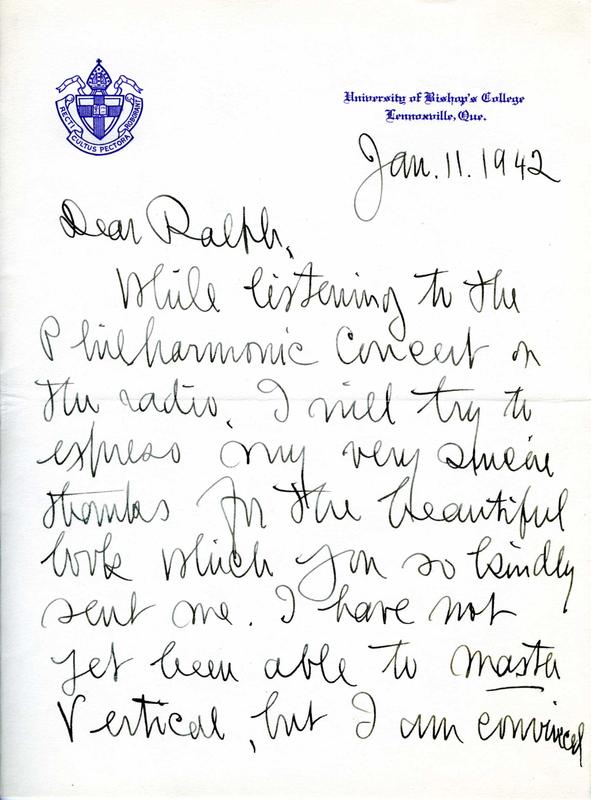 RECTI CULTUS PECTORA ROBORANT
University of Bishop's College
Lennoxville, Que.
Jan. 11. 1942
Dear Ralph,
While listening to the
Philharmonic Concert on
the radio, I will try to
express my very sincere
thanks for the beautiful
book which you so kindly
sent me. I have not
yet been able to master
Vertical, but I am convinced